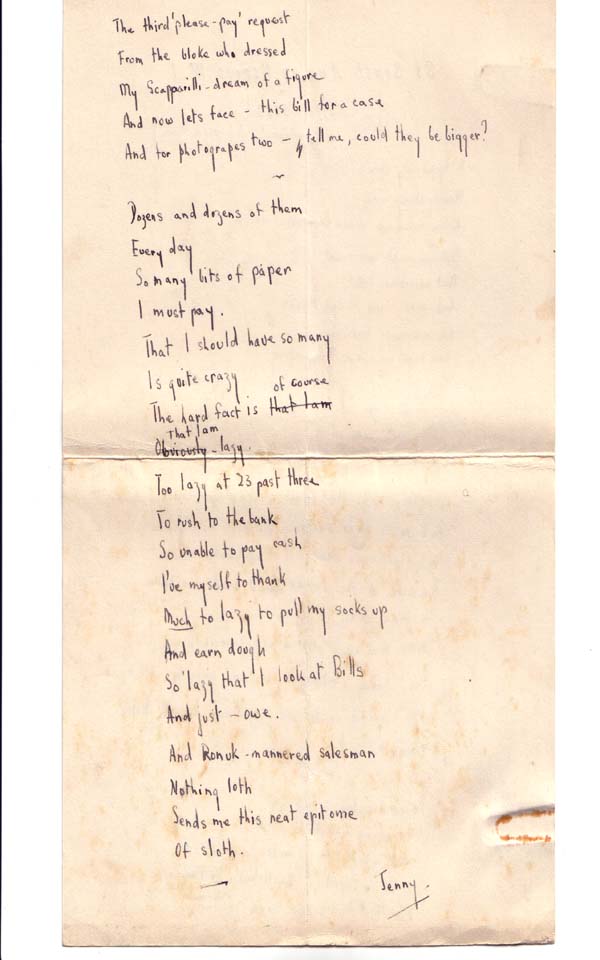 The third 'please-pay' request
From the bloke who dressed
My Scapparilli-dream of a figure
And now lets face - this bill for a case
And for photograpes two - tell me, could they be bigger?
Dozens and dozens of them
Every day
So many bits of paper
I must pay.
That I should have so many
Is quite crazy
of course
The hard fact is that I am
That I am
Obviously - lazy.
Too lazy at 23 past three
To rush to the bank
So unable to pay cash
I've myself to thank
Much to lazy to pull my socks up
And earn dough
So lazy that I look at Bills
And just - owe.
And Ronuk-mannered salesman
Nothing loth
Sends me this neat epitome
Of sloth.
Jenny.